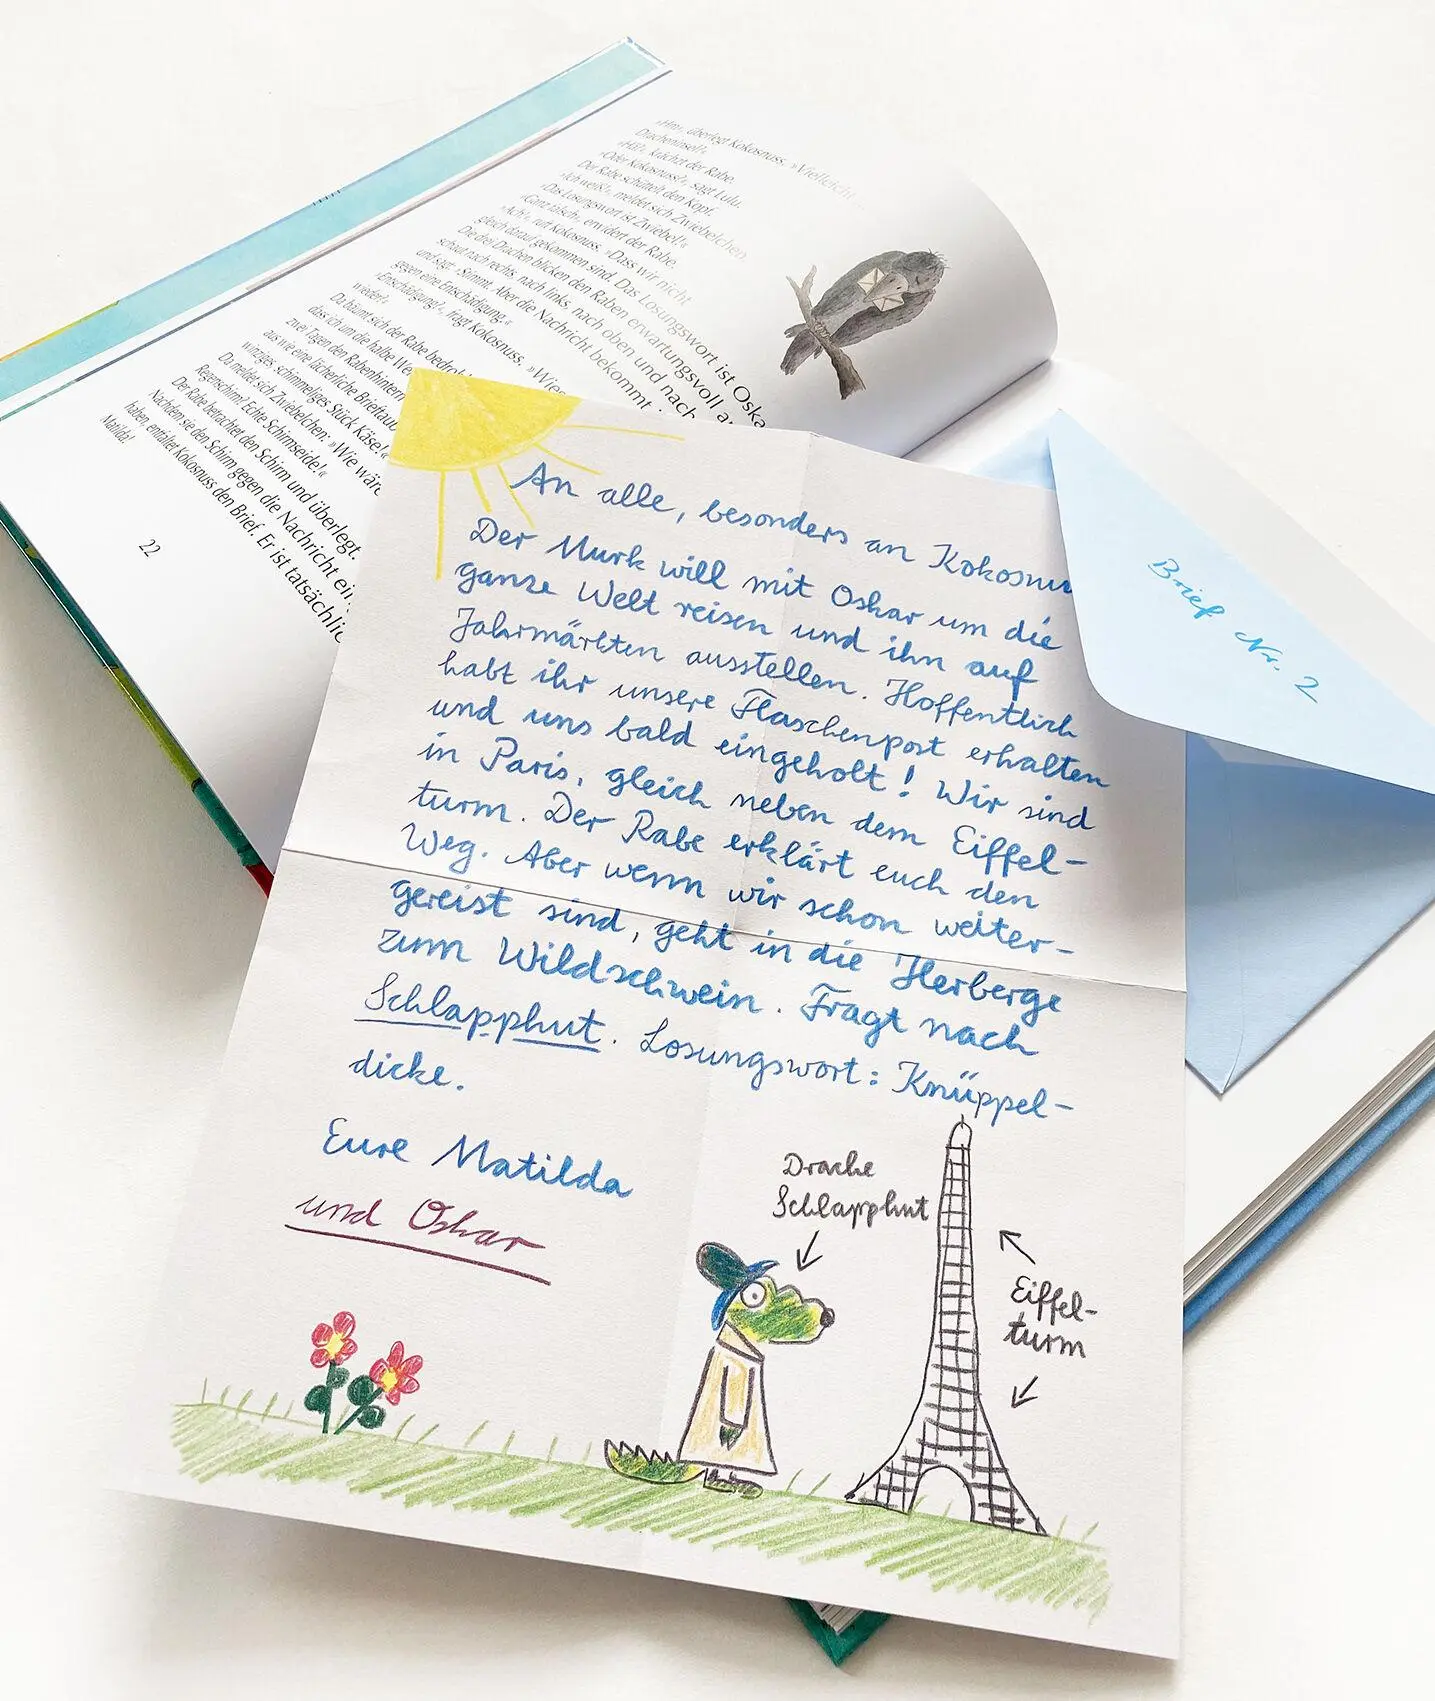 »Hm«, überlegt Kokosnuss. »Vielleicht
Dracheninsel?«
»Hä?«, krächzt der Rabe.
»Oder Kokosnuss?«, sagt Lulu.
Der Rabe schüttelt den Kopf.
»Ich weiß!«, meldet sich Zwiebelchen
»Das Losungswort ist Zwiebel!«
»Ganz falsch«, erwidert der Rabe.
»Ach!«, ruft Kokosnuss. »Dass wir nicht
gleich darauf gekommen sind. Das Losungswort ist Oska
Die drei Drachen blicken den Raben erwartungsvoll a
schaut nach rechts, nach links, nach oben und nach
und sagt: »Stimmt. Aber die Nachricht bekommt i
gegen eine Enschädigung.«
»Enschädigung?«, fragt Kokosnuss. »Wies
wieder?«
Da bäumt sich der Rabe bedroh
dass ich um die halbe We
zwei Tagen den Rabenhintern
aus wie eine lächerliche Brieftau
winziges schimmeliges Stück Käse!«
Da meldet sich Zwiebelchen. »Wie wäre
Regenschirm? Echte Schirmseide!«
Der Rabe betrachtet den Schirm und überlegt.
Nachdem sie den Schirm gegen die Nachricht ein
haben, entfaltet Kokosnuss den Brief. Er ist tatsächlic
Matilda!
22
Brief Nr. 2
An alle, besonders an Kokosnu
Der Murk will mit Oskar um die
ganze Welt reisen und ihn auf
Jahrmärkten ausstellen. Hoffentlich
habt ihr unsere Flaschenpost erhalten
und uns bald eingeholt! Wir sind
in Paris, gleich neben dem Eiffel-
turm. Der Rabe erklärt euch den
Weg. Aber wenn wir schon weiter-
gereist sind, geht in die Herberge
zum Wildschwein. Fragt nach
Schlapphut. Losungswort: Knüppel-
dicke.
Eure Matilda
und Oskar
Drache
Schlapphut
Eiffel-
turm